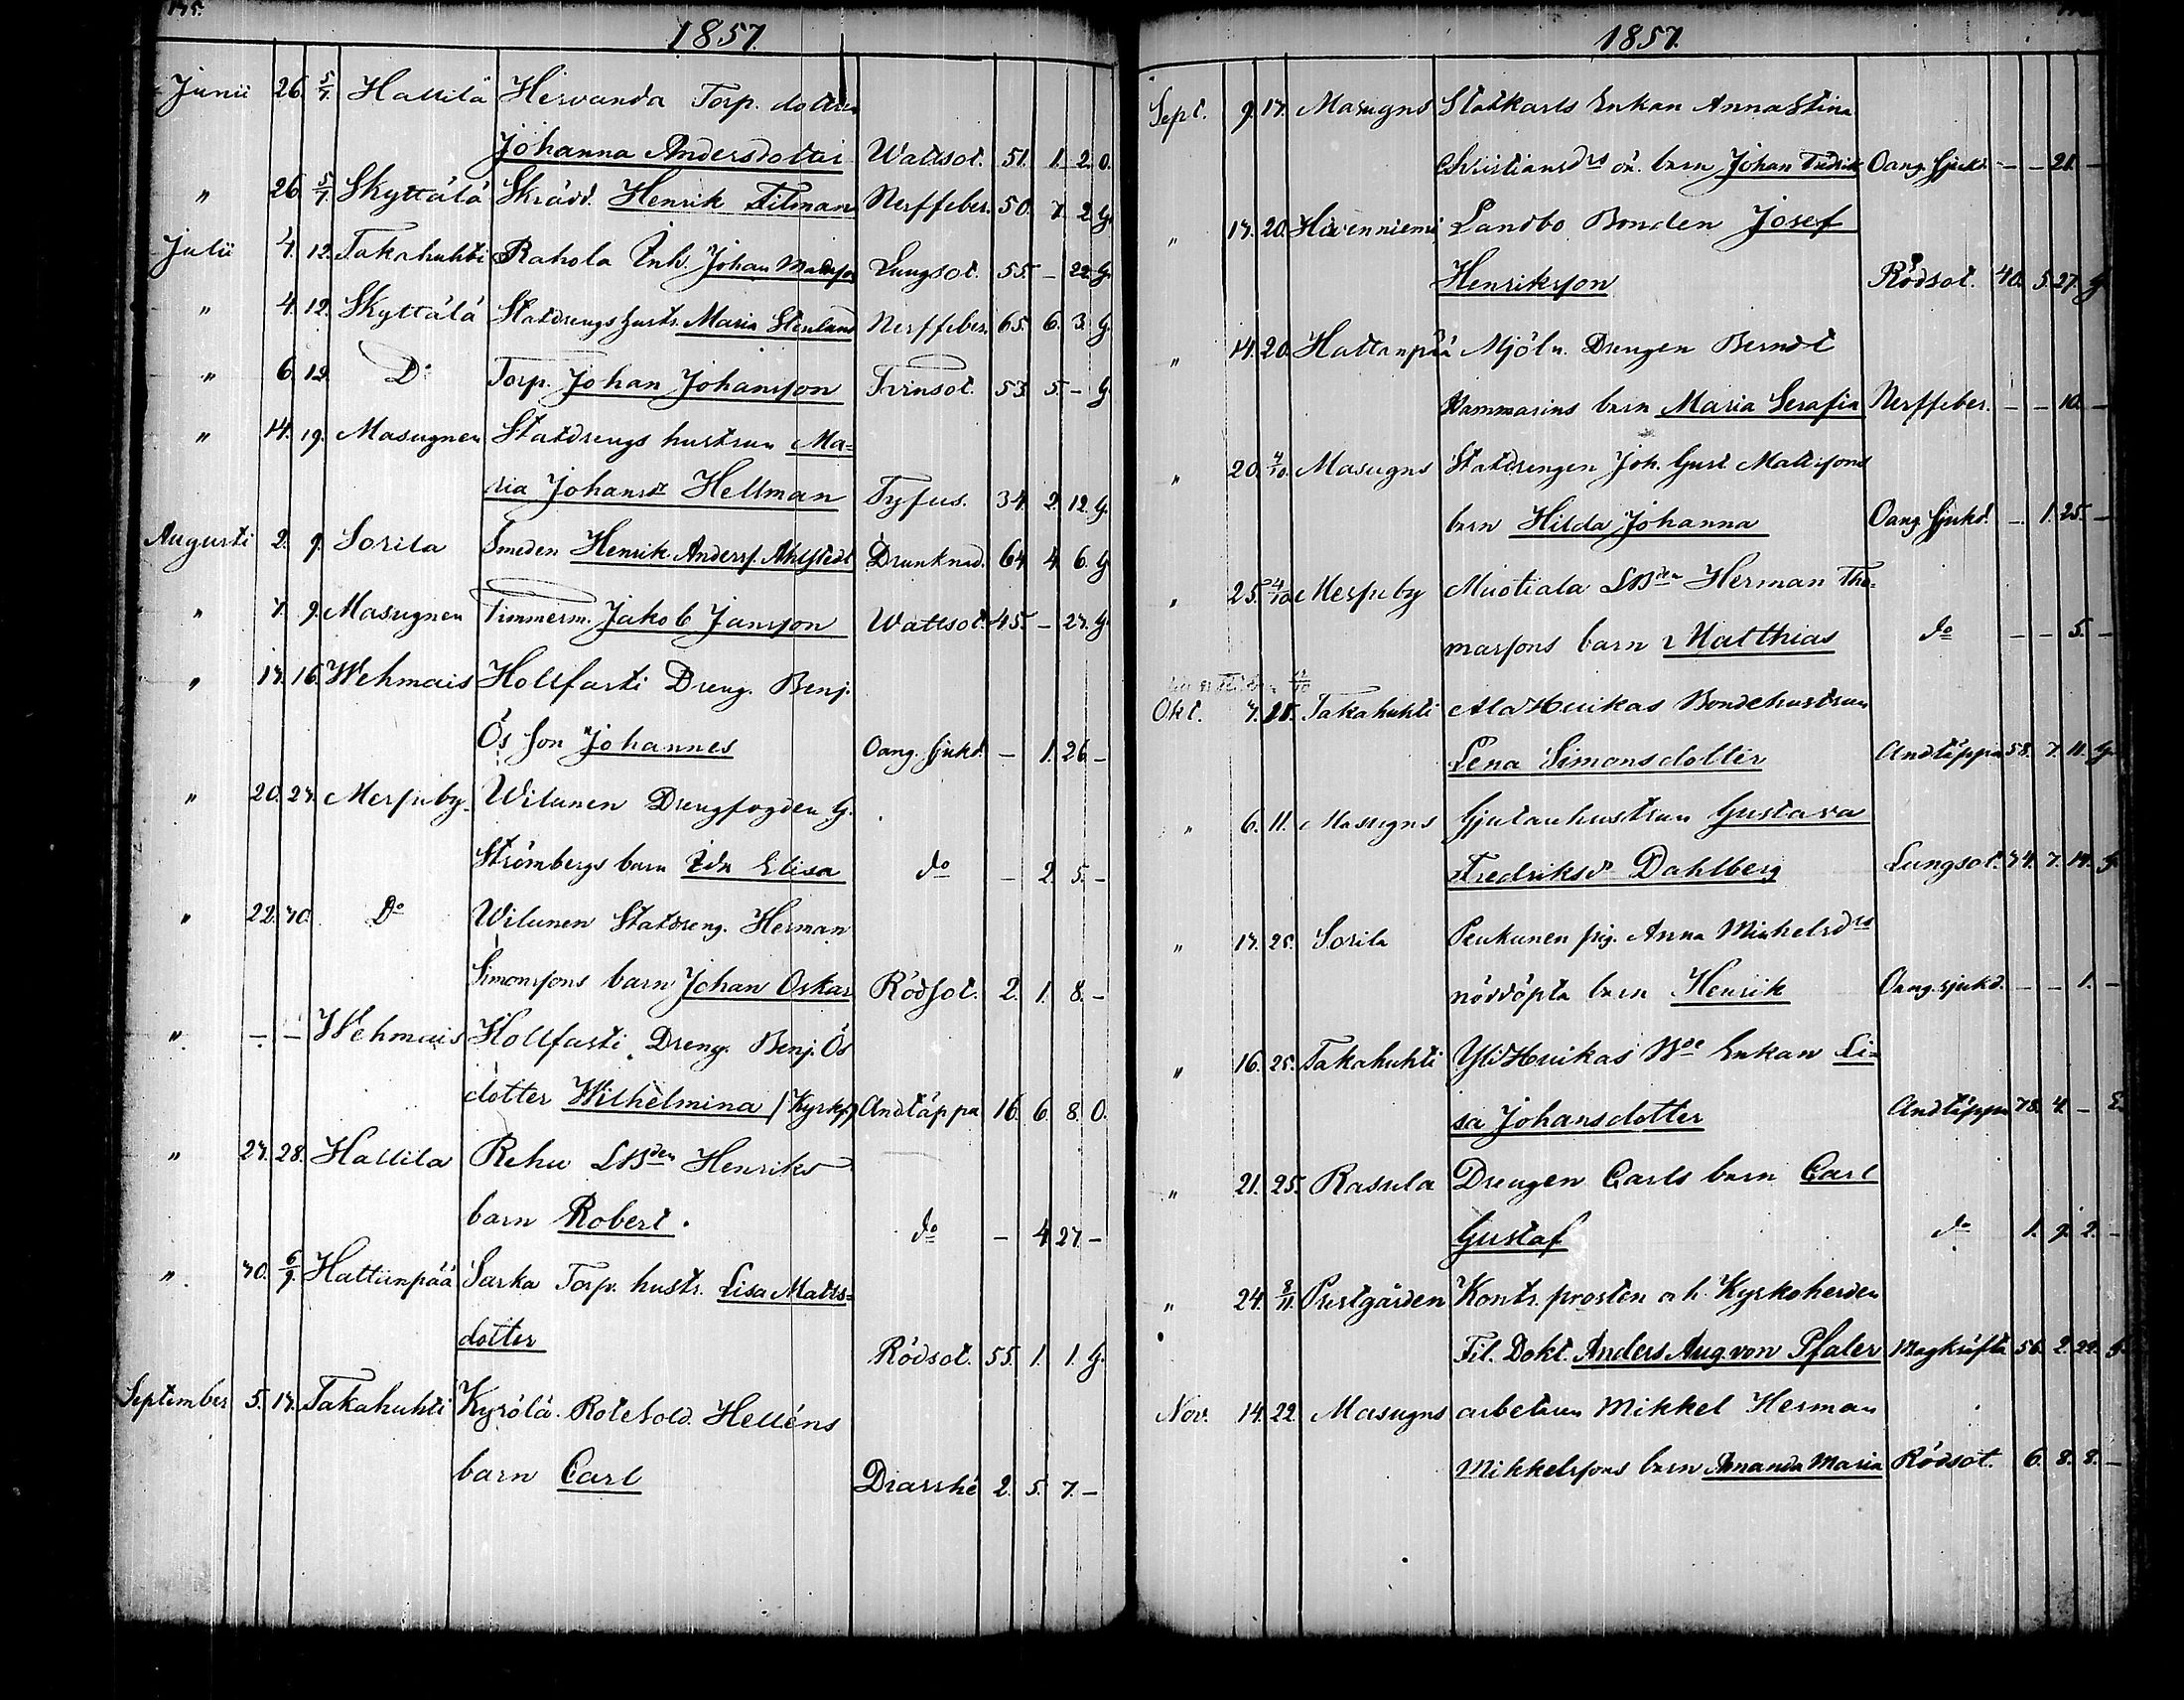 1857.
Junii 26. 5/7. Hallila Hervanda Torp. dottren
Johanna Andersdotter Wattsot. 51. 1. 2. O.
" 26. 5/7. Skyttälä Skrädd. Henrik Filman Nerffeber. 50. 7. 2. G.
Julii 4. 12. Takahuhti Rahola Inh. Johan Mattsson Lungsot. 55. – 22. G.
" 4. 12. Skyttälä Statdrengs hustr. Maria Stenlund Nerffeber. 65. 6. 3. G.
" 6. 12. Do Torp. Johan Johansson Tvinsot. 53. 5. – G
" 14. 19. Masugnen Statdrengs hustrun Ma=
ria Johansdr Hellman Tyfus. 34. 2. 12. G.
Augusti 2. 9. Sorila Smeden Henrik Anderss. Ahlstedt Drunknad. 64. 4. 6. G
" 7. 9. Masugnen Timmerm. Jakob Jansson Wattsot. 45. – 27. G.
" 13. 16. Wehmais Hollfasti Dreng. Benj.
Ös son Johannes Oang. sjukd. – 1. 26. –
" 20. 23. Messuby. Wilunen Drengfogden G.
Strömbergs barn Ida Elisa do – 2. 5. –
" 22. 30. Do Wilunen Statdreng. Herman
Simonssons barn Johan Oskar Rödsot. 2. 1. 8. –
" – – Wehmais Hollfasti Dreng. Benj. Ös
dotter Wilhelmina /Kyrkp/ Andtäppa 16. 6. 8. O.
" 27. 28. Hallila Rehu LBden Henriks
barn Robert. do – 4. 27. –
" 30. 6/9. Hattanpää Sarka Torp. hustr. Lisa Matts=
dotter Rödsot. 55. 1. 1. G.
September 5. 13. Takahuhti Kyrölä Rotesold. Helléns
barn Carl Diarrhé 2. 5. 7. –
1857.
Sept. 9. 13. Masugns Statkarls Enkan Anna Stina
Christiansdrs oä. barn Johan Fredrik Oang. sjukd. – – 21. –
" 13. 20. Hirvenniemi Landbo Bonden Josef
Henriksson Rödsot. 40. 5. 27. G
" 14. 20. Hattanpää Mjöln. Drengen Berndt
Hammarins barn Maria Serafia Nerffeber. – – 10. –
" 20. 4/10. Masugns Statdrengen Joh. Gust Mattssons
barn Hilda Johanna Oang. sjukd. – 1. 25. –
" 25. 4/10 Messuby Muotiala LBden Herman Tho=
massons barn Matthias do – – 5. –
Okt. Takahuhti Ala Huikas Bondehustrun
Lena Simonsdotter Andtäppa 58. 7. 11. G
" 6. 11. Masugns Gjutarehustrun Gustava
Fredriksdr Dahlberg Lungsot. 34. 7. 14. G
" 13. 25. Sorila Penkunen pig. Anna Michelsdrs
nöddöpta barn Henrik Oang. sjukd. – – 1. –
" 16. 25. Takahuhti Yli Huikas Bde Enkan Li=
sa Johansdotter Andtäppa 78. 4. – E.
" 21. 25. Rasula Drengen Carls barn Carl
Gustaf do 1. 9. 2. –
" 24. 8/11. Prestgården Kontr. prosten oh. Kyrkoherden
Fil. Dokt. Anders Aug. von Pfaler Magkräfta 56. 2. 22. G.
Nov. 14. 22. Masugns arbetaren Mikkel Herman
Mikkelssons barn Amanda Maria Rödsot. 6. 8. 8. –